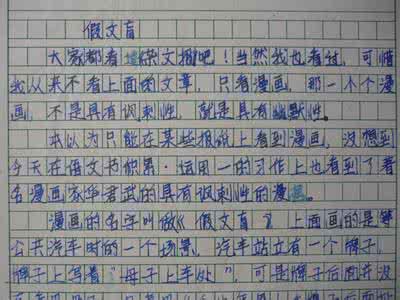 假文盲
大家都看过杂文报吧！当然我也看过，可惜
我从来不看上面的文章，只看漫画，那一个个漫
画，不是具有讽刺性，就是具有幽默性。
本以为只能在某些报纸上看到漫画，没想到
今天在语文书积累·运用一的习作上也看到了著
名漫画家华君武的具有讽刺性的漫画。
漫画的名字叫做《假文盲》，上面画的是等
公共汽车时的一个场景，汽车站立有一个牌子，
牌子上写着“母子上车处”，可是牌子后面并没